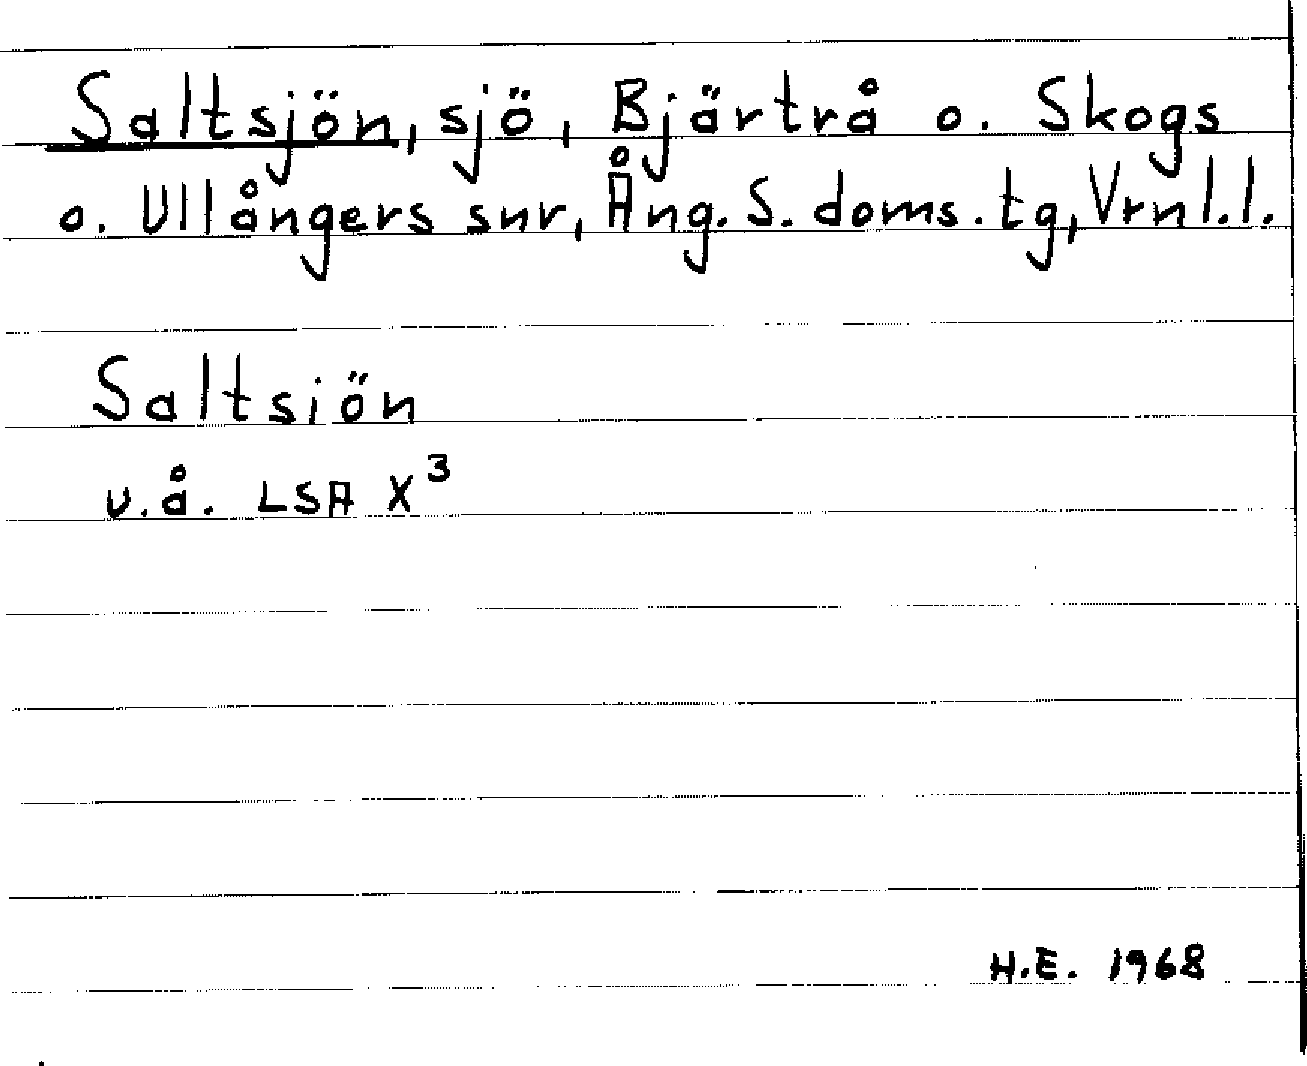 Saltsjön, sjö, Bjärtrå o. Skogs
o. Ullångers snr, Ång. S. doms. tg, Vrnl.l.
Saltsiön
u.å. LSA X³
H.E. 1968